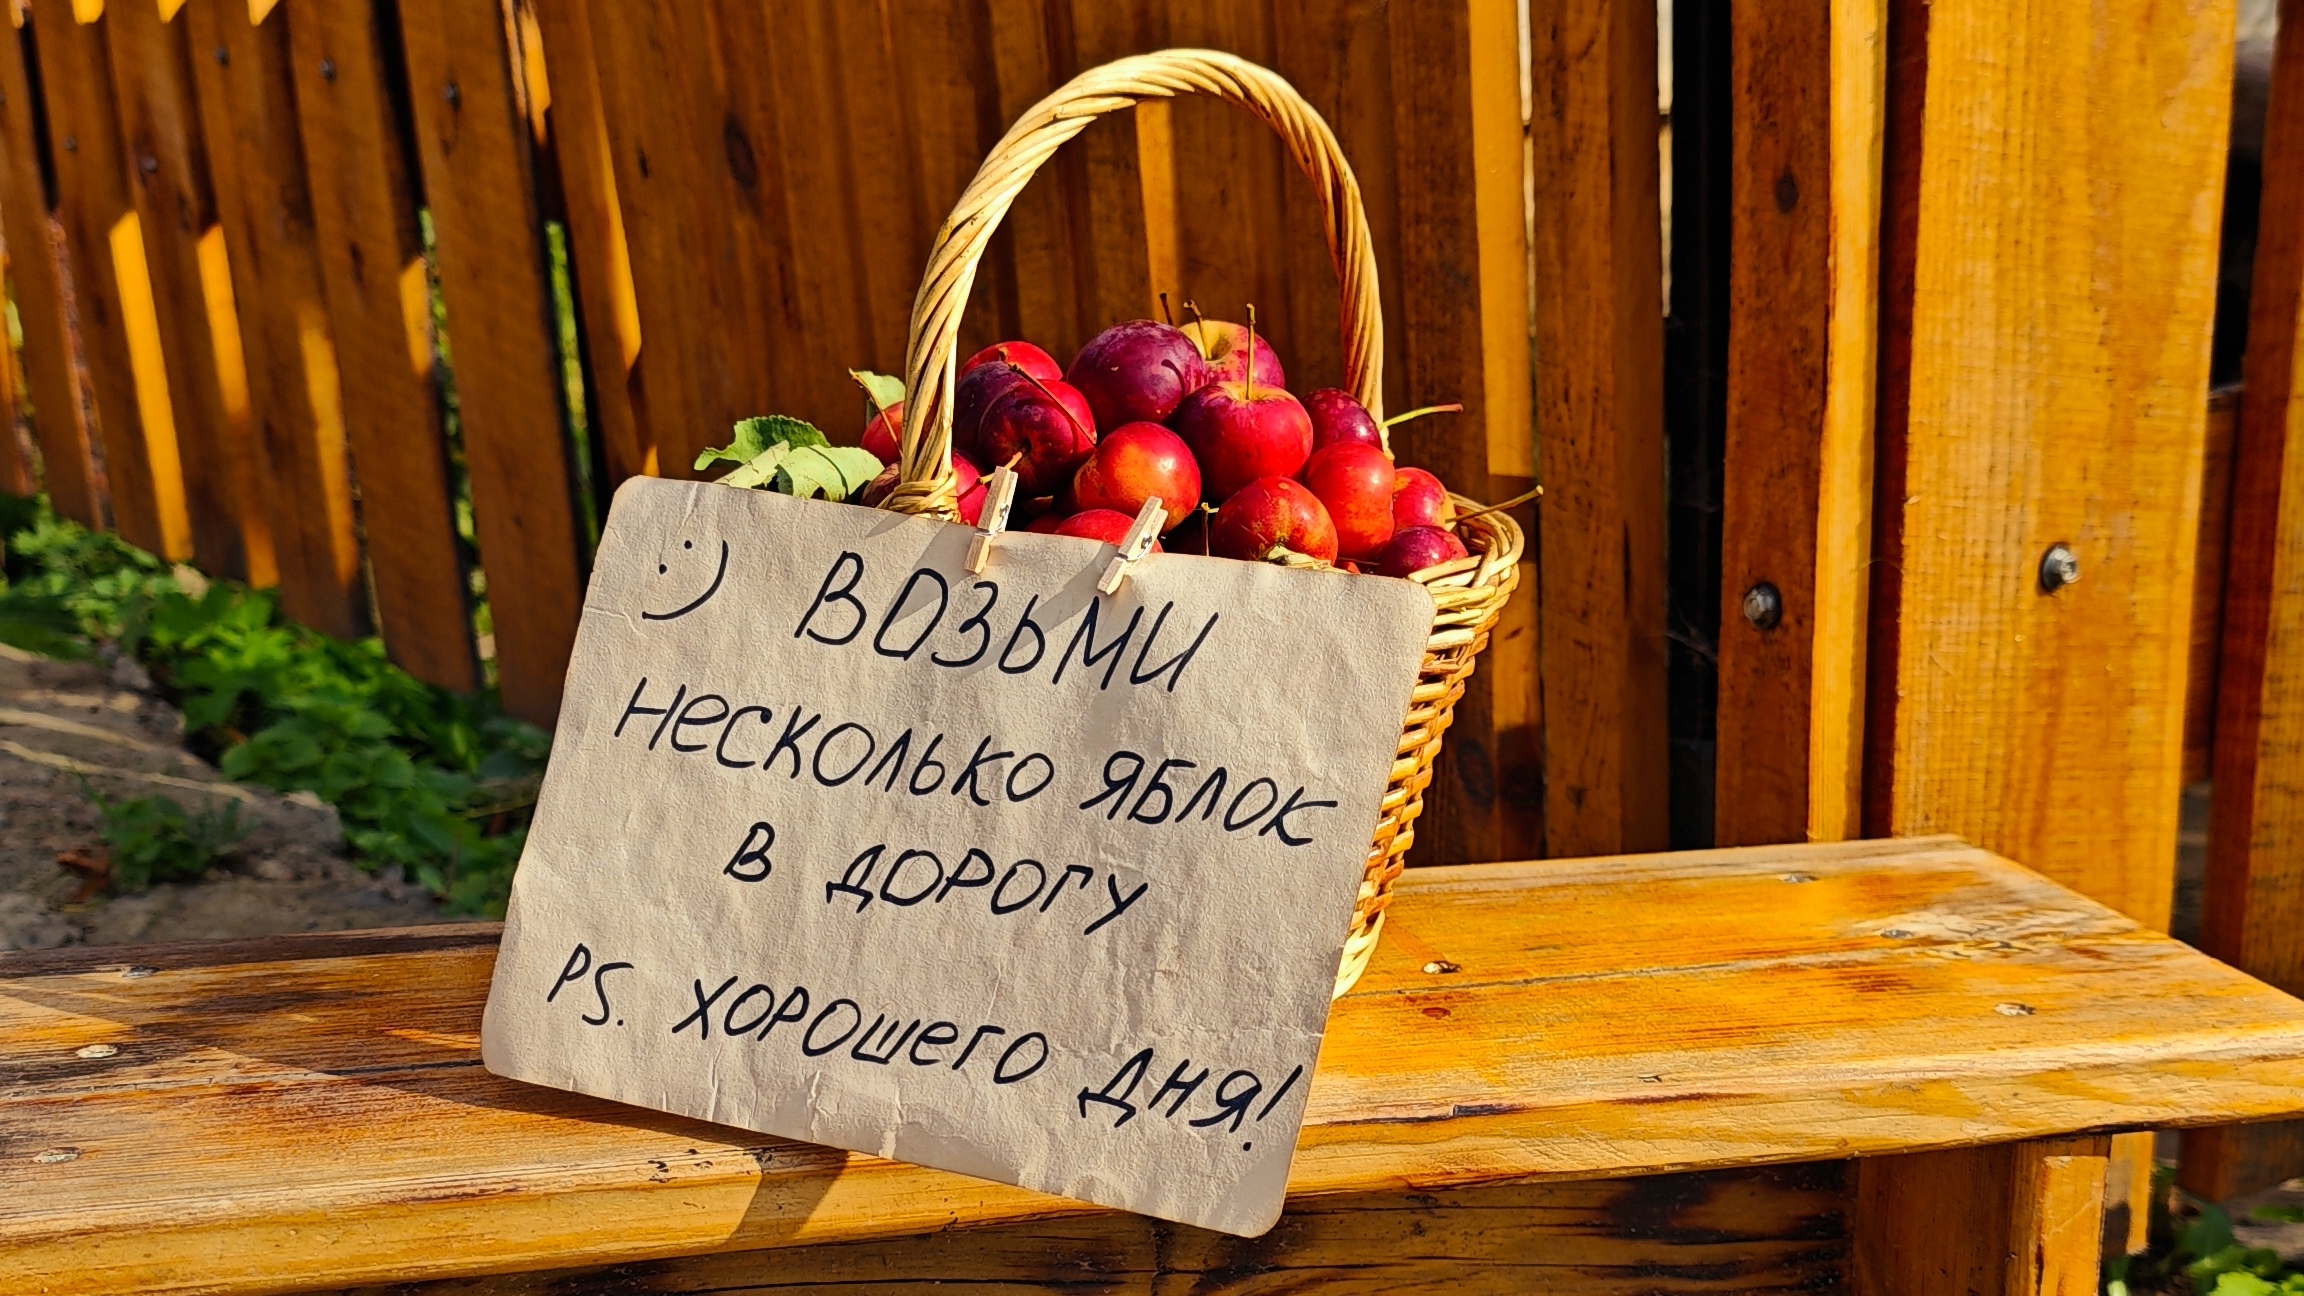 :) ВОЗЬМИ
НЕСКОЛЬКО ЯБЛОК
В ДОРОГУ
PS. ХОРОШЕГО ДНЯ!